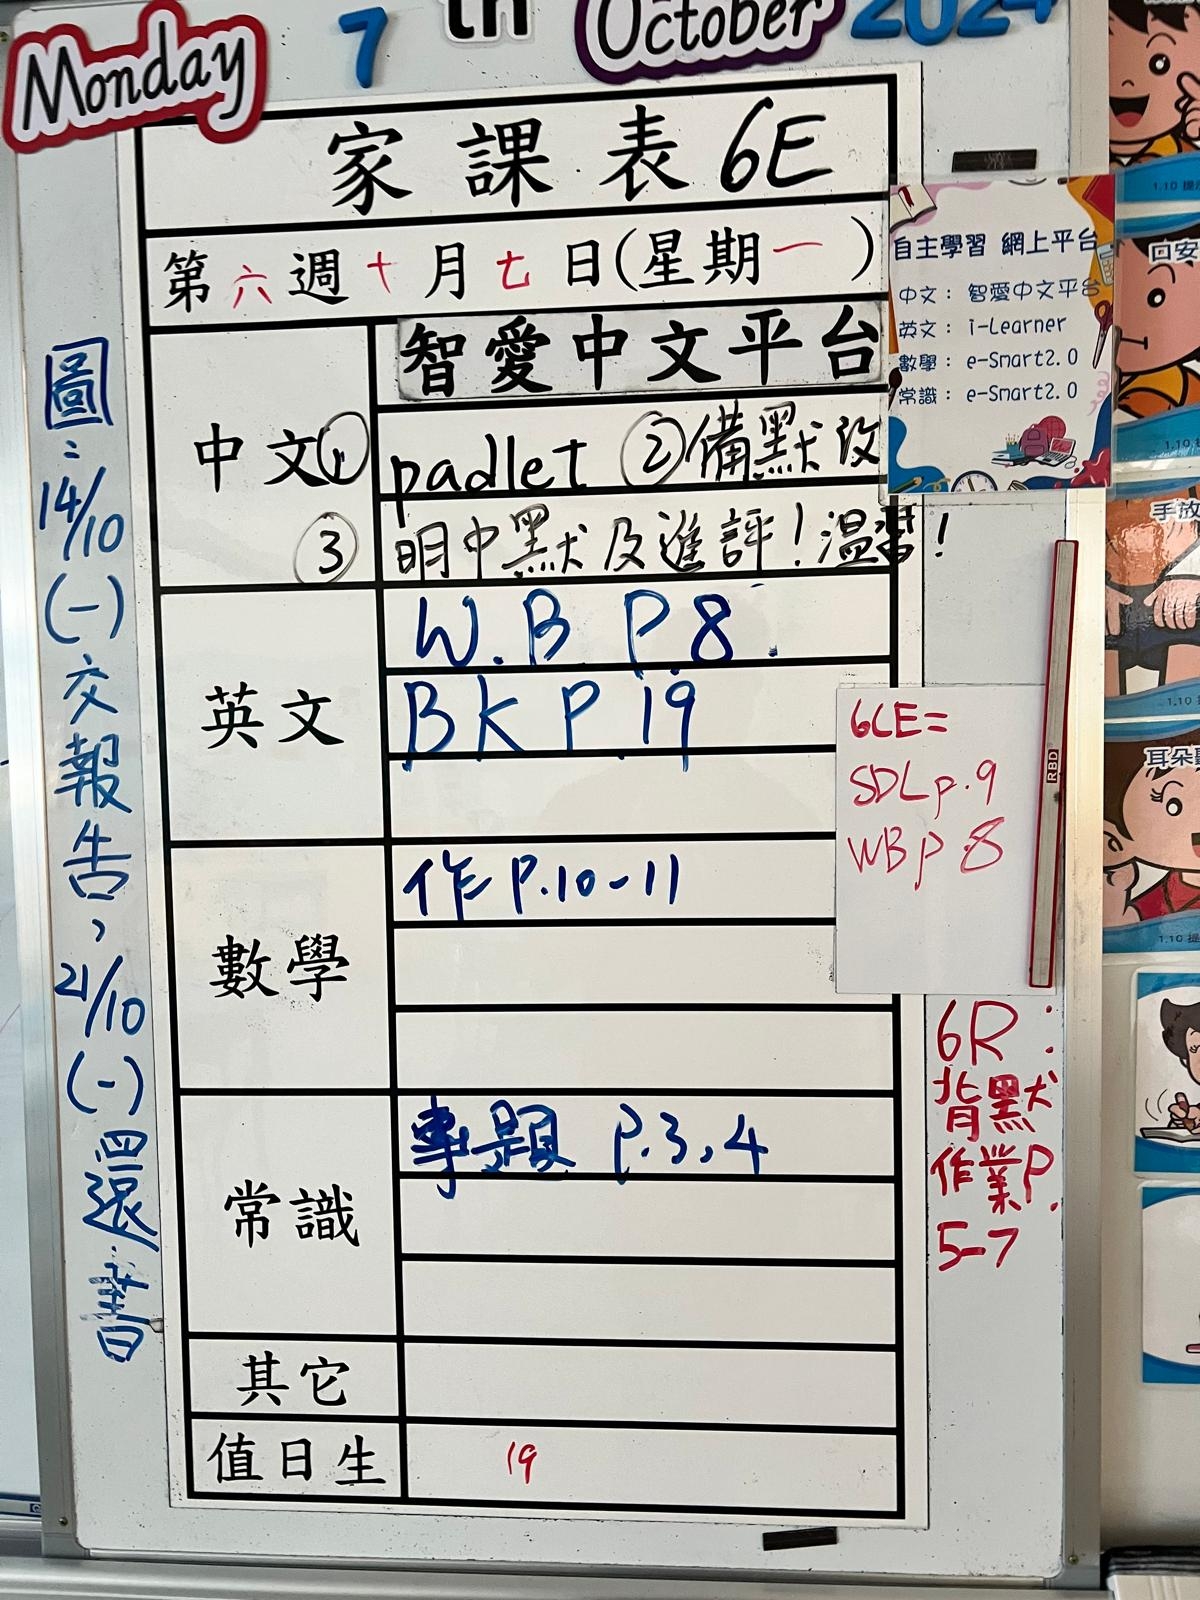 Monday 7 th October 2024
家課表 6E
第六週十月七日(星期一)
中文①
智愛中文平台
padlet ②備默改
③ 明中默及進評！溫習！
英文
W.B P.8.
BK P.19
數學
作 P.10-11
常識
專題 P.3,4
其它
值日生 19
圖：14/10(一)交報告，21/10(一)還書
自主學習 網上平台
中文：智愛中文平台
英文：i-Learner
數學：e-Smart2.0
常識：e-Smart2.0
6CE=
SDL p.9
WB p.8
RBD
6R：
背默
作業P.
5-7
1.10
回安
1.10
手放
1.10
耳朵
1.10